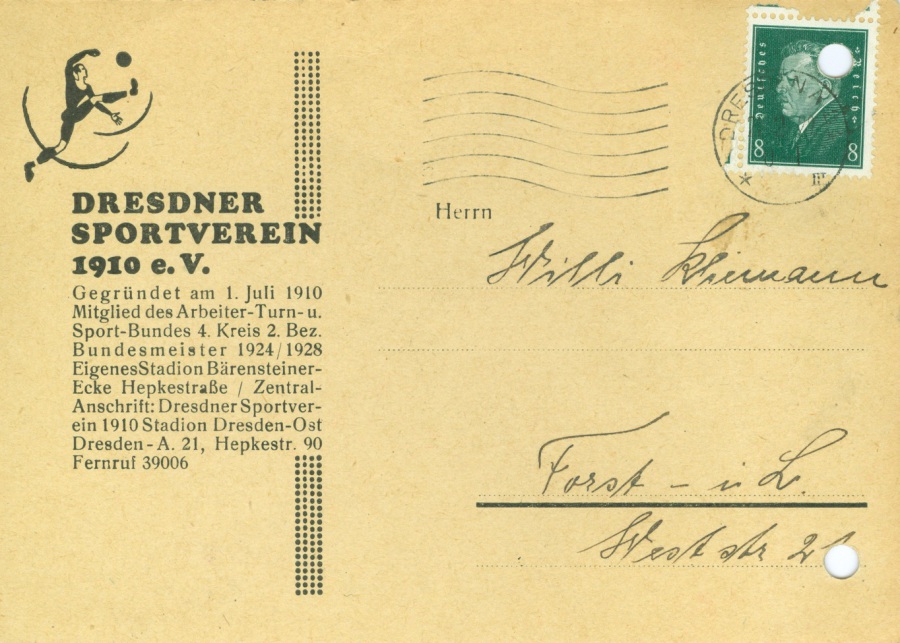 DRESDNER
SPORTVEREIN
1910 e. V.
Gegründet am 1. Juli 1910
Mitglied des Arbeiter-Turn- u.
Sport-Bundes 4. Kreis 2. Bez.
Bundesmeister 1924/1928
Eigenes Stadion Bärensteiner-
Ecke Hepkestraße / Zentral-
Anschrift: Dresdner Sportver-
ein 1910 Stadion Dresden-Ost
Dresden-A. 21, Hepkestr. 90
Fernruf 39006
Deutsches Reich
8 8
Herrn
Willi Kliemann
Forst - i L.
Weststr